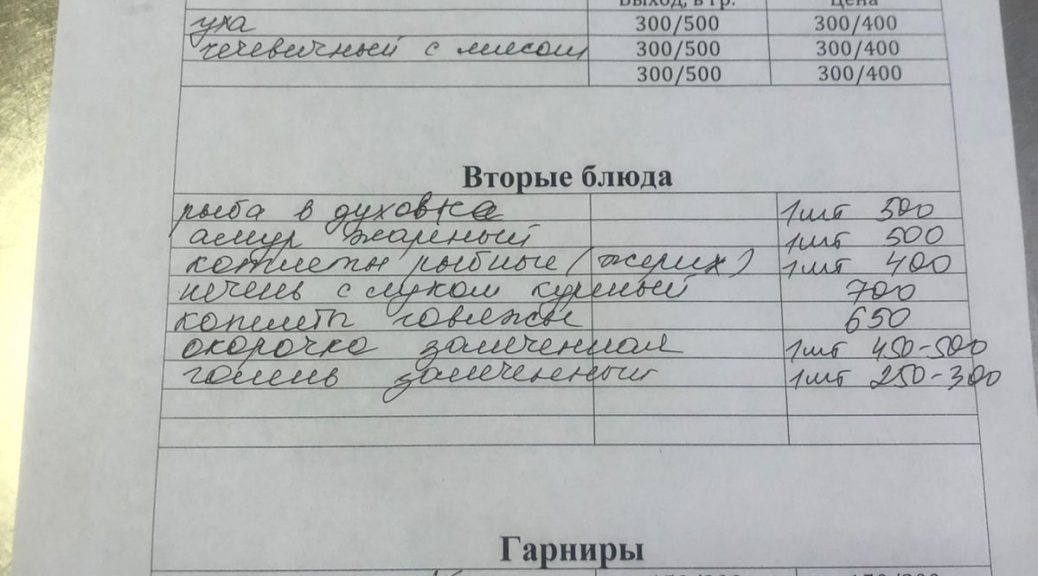 Выход, в гр. Цена
уха 300/500 300/400
чечевичный с мясом 300/500 300/400
300/500 300/400
Вторые блюда
рыба в духовке 1шт 500
амур жареный 1шт 500
котлеты рыбные (жерих) 1шт 400
печень с луком куриный 700
котлеты говяжьи 650
окорочка запеченная 1шт 450-500
голень запеченный 1шт 250-300
Гарниры